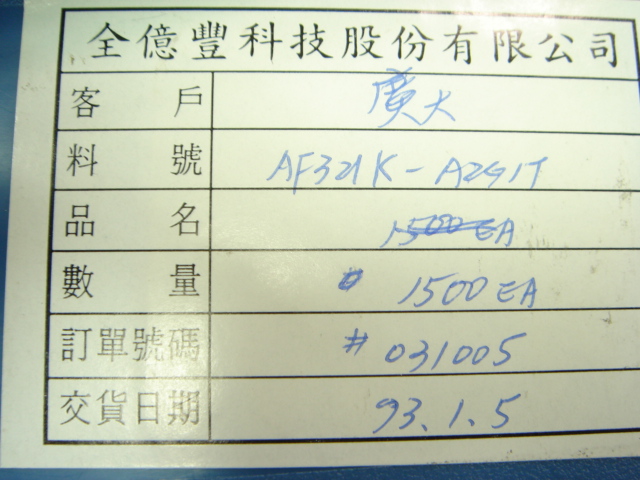 全億豐科技股份有限公司
客戶 廣大
料號 AF321K-A2G1T
品名 1500EA
數量 1500EA
訂單號碼 #031005
交貨日期 93.1.5